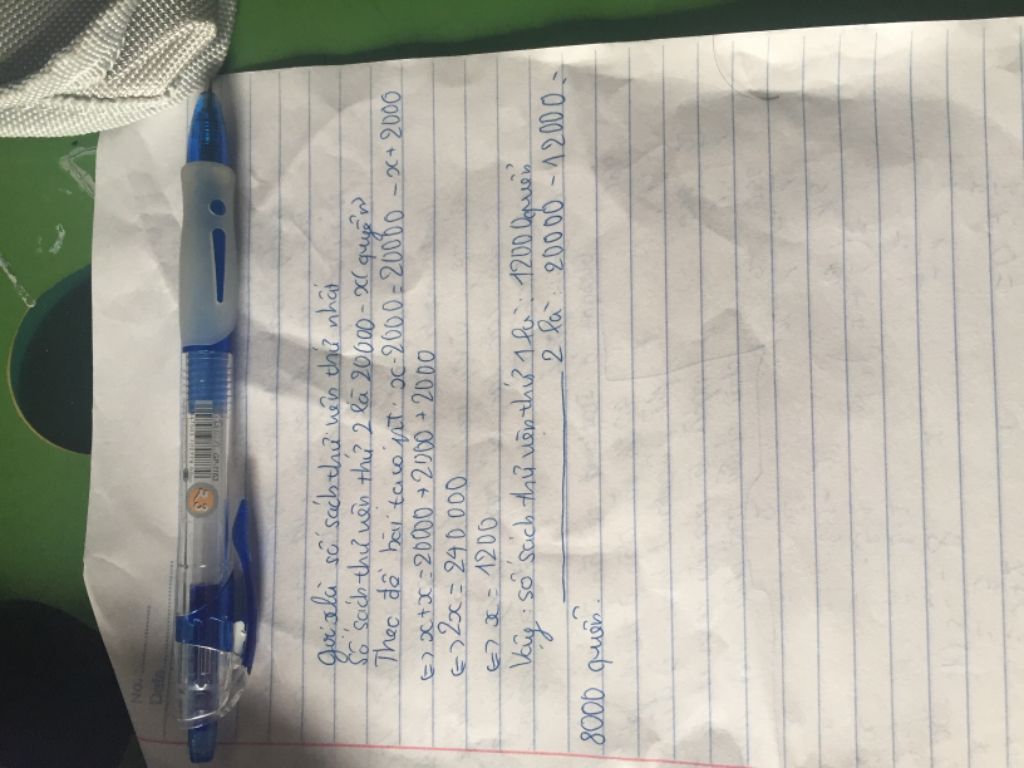 No.
Date
Gọi x là số sách thư viện thứ nhất
Số sách thư viện thứ 2 là 20000 - x (quyển)
Theo đề bài ta có pt: x - 2000 = 20000 - x + 2000
<=> x + x = 20000 + 2000 + 2000
<=> 2x = 240000
<=> x = 1200
Vậy: số sách thư viện thứ 1 là: 12000 quyển
2 là: 20000 - 12000 =
8000 quyển.